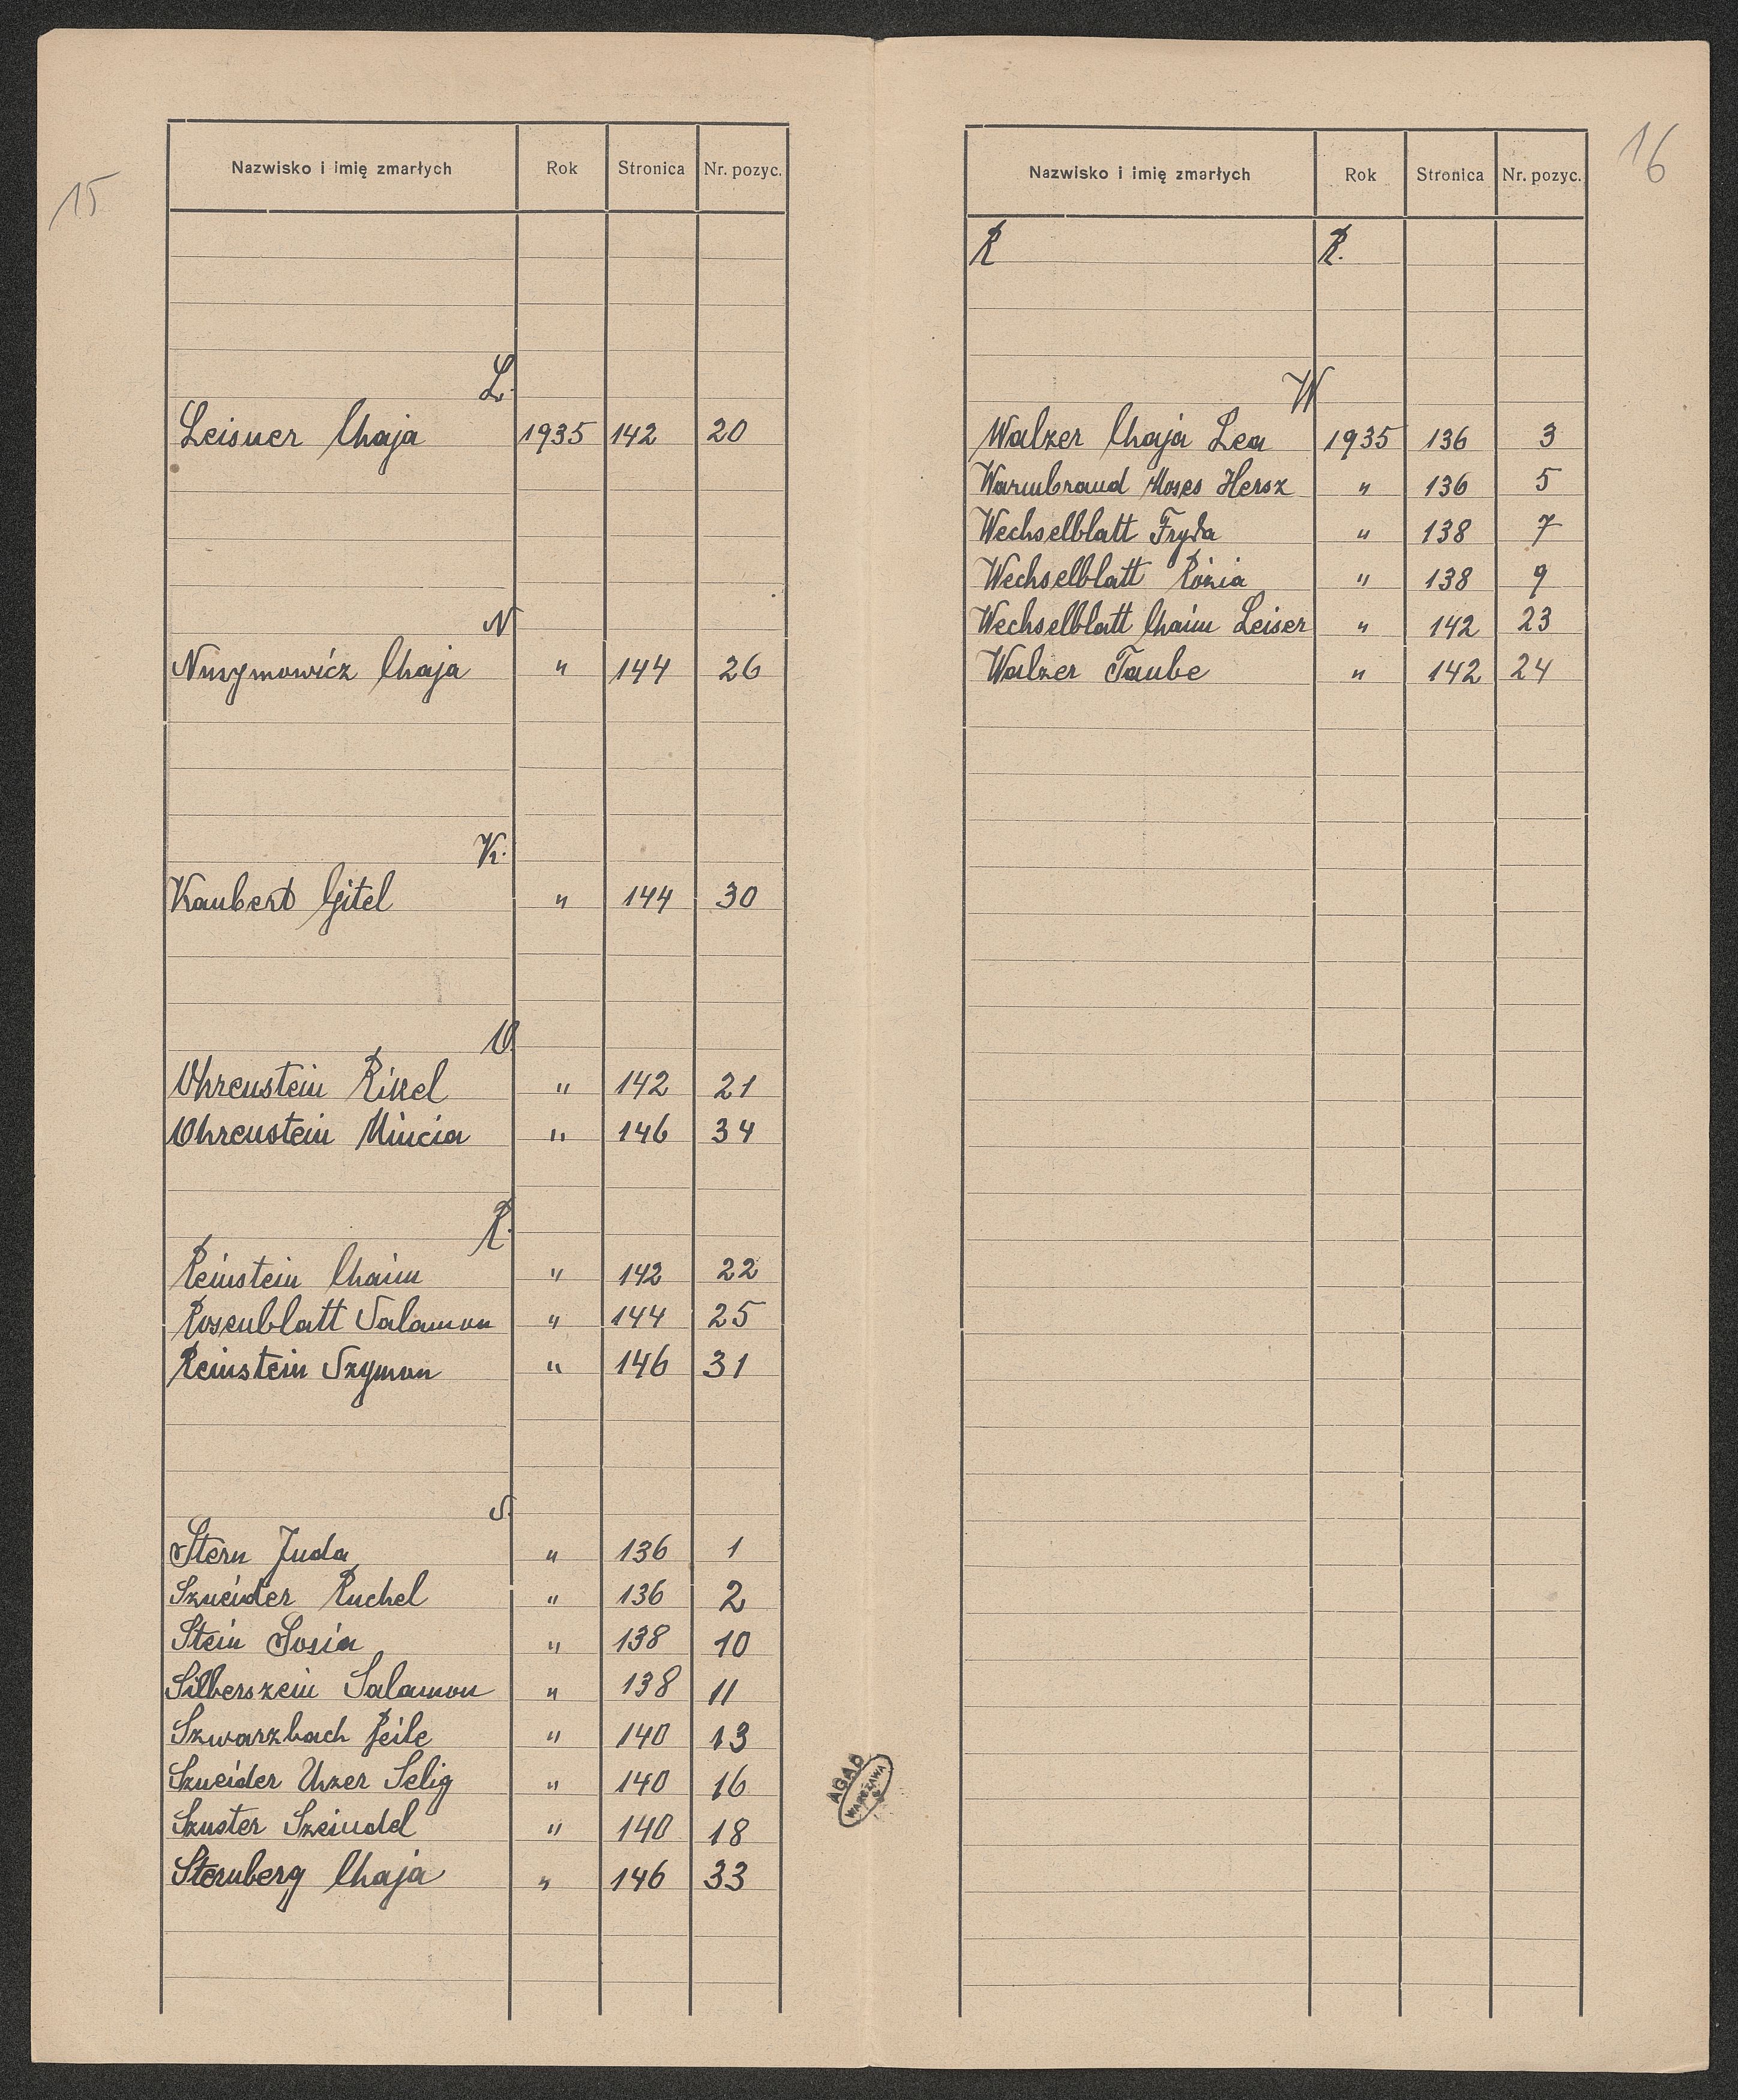 15
Nazwisko i imię zmarłych Rok Stronica Nr. pozyc.
L.
Leisner Chaja 1935 142 20
N
Nusymowicz Chaja " 144 26
K.
Kaubert Gitel " 144 30
O.
Ohrenstein Rikel " 142 21
Ohrenstein Mincia " 146 34
R.
Reinstein Chaim " 142 22
Rosenblatt Salamon " 144 25
Reinstein Szymon " 146 31
S.
Stern Juda " 136 1
Szneider Ruchel " 136 2
Stein Sosia " 138 10
Silberszein Salamon " 138 11
Szwarzbach Feile " 140 13
Szneider Uszer Selig " 140 16
Szuster Szeindel " 140 18
Sternberg Chaja " 146 33
AGAD
WARSZAWA
16
Nazwisko i imię zmarłych Rok Stronica Nr. pozyc.
R R.
W
Walzer Chaja Lea 1935 136 3
Warmbrand Moses Hersz " 136 5
Wechselblatt Fryda " 138 7
Wechselblatt Rózia " 138 9
Wechselblatt Chaim Leiser " 142 23
Walzer Taube " 142 24